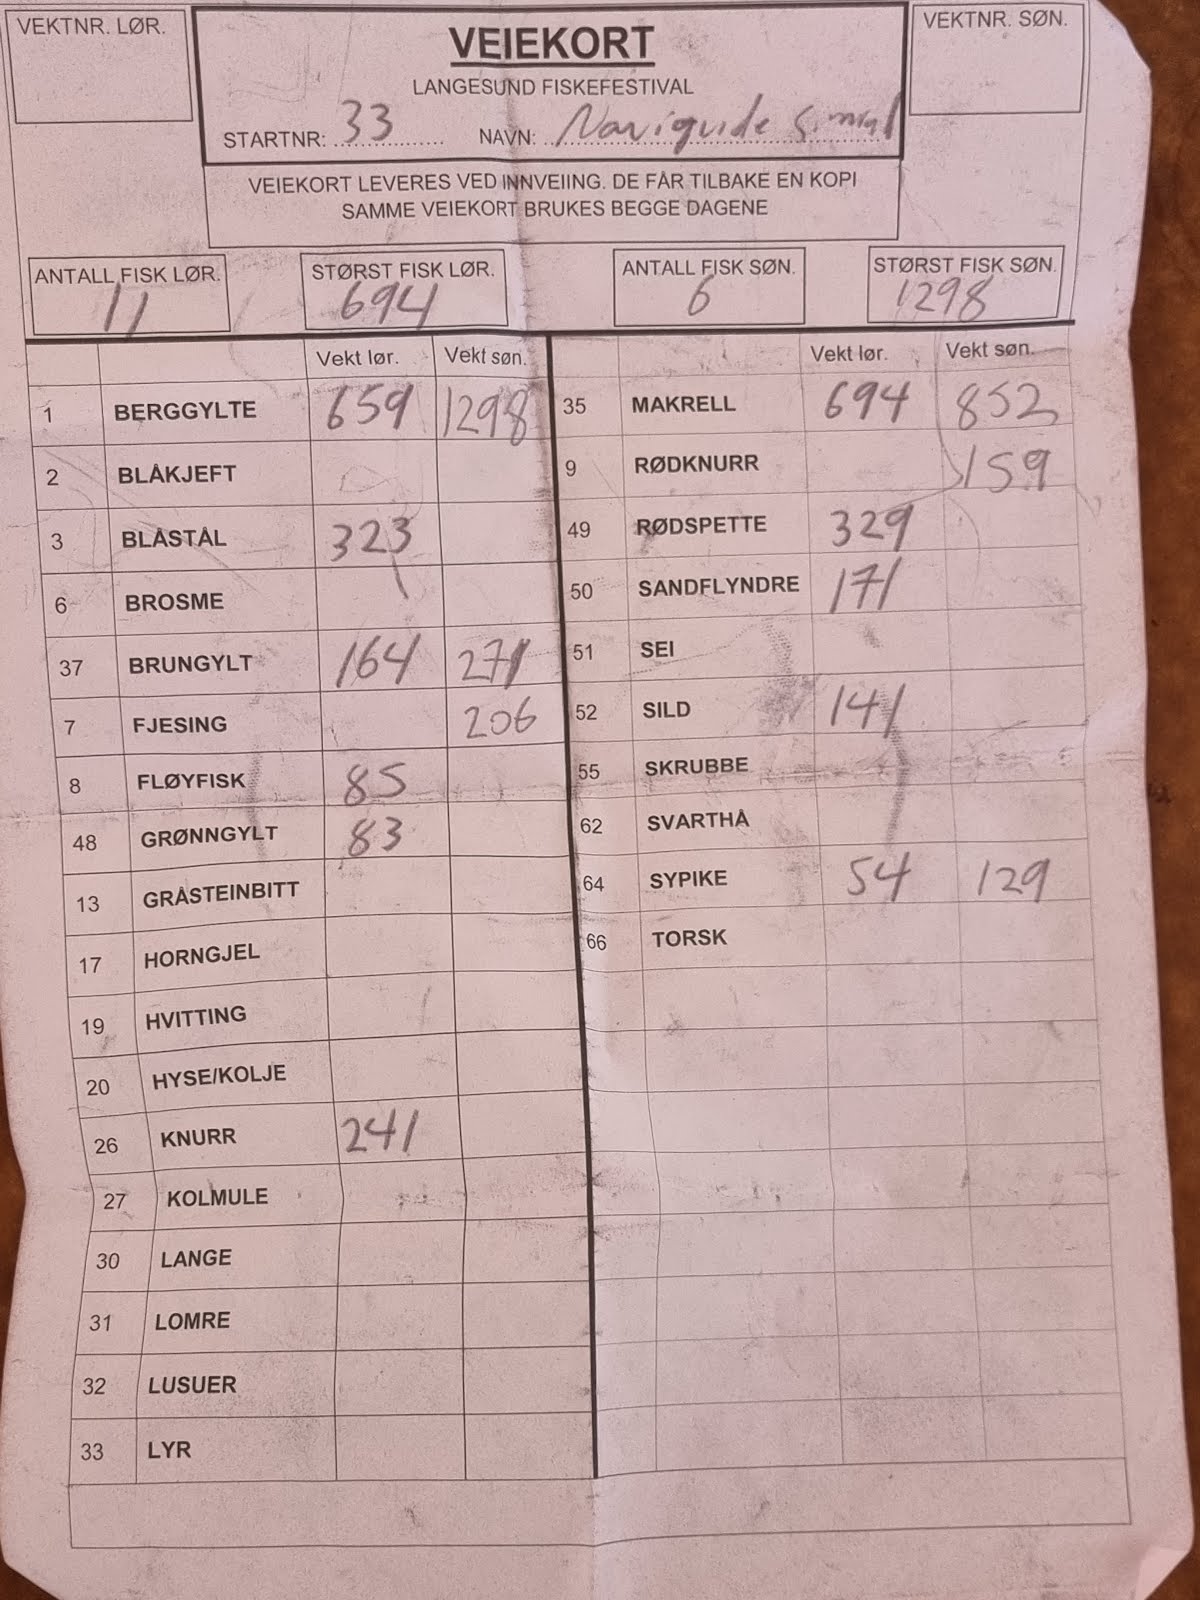 VEKTNR. LØR.
VEIEKORT
VEKTNR. SØN.
LANGESUND FISKEFESTIVAL
STARTNR: 33 NAVN: Naviguide Simrad
VEIEKORT LEVERES VED INNVEIING. DE FÅR TILBAKE EN KOPI
SAMME VEIEKORT BRUKES BEGGE DAGENE
ANTALL FISK LØR. STØRST FISK LØR. ANTALL FISK SØN. STØRST FISK SØN.
11 694 6 1298
Vekt lør. Vekt søn. Vekt lør. Vekt søn.
1 BERGGYLTE 659 1298 35 MAKRELL 694 852
2 BLÅKJEFT 9 RØDKNURR 159
3 BLÅSTÅL 323 49 RØDSPETTE 329
6 BROSME 50 SANDFLYNDRE 171
37 BRUNGYLT 164 271 51 SEI
7 FJESING 206 52 SILD 141
8 FLØYFISK 85 55 SKRUBBE
48 GRØNNGYLT 83 62 SVARTHÅ
13 GRÅSTEINBITT 64 SYPIKE 54 129
17 HORNGJEL 66 TORSK
19 HVITTING
20 HYSE/KOLJE
26 KNURR 241
27 KOLMULE
30 LANGE
31 LOMRE
32 LUSUER
33 LYR